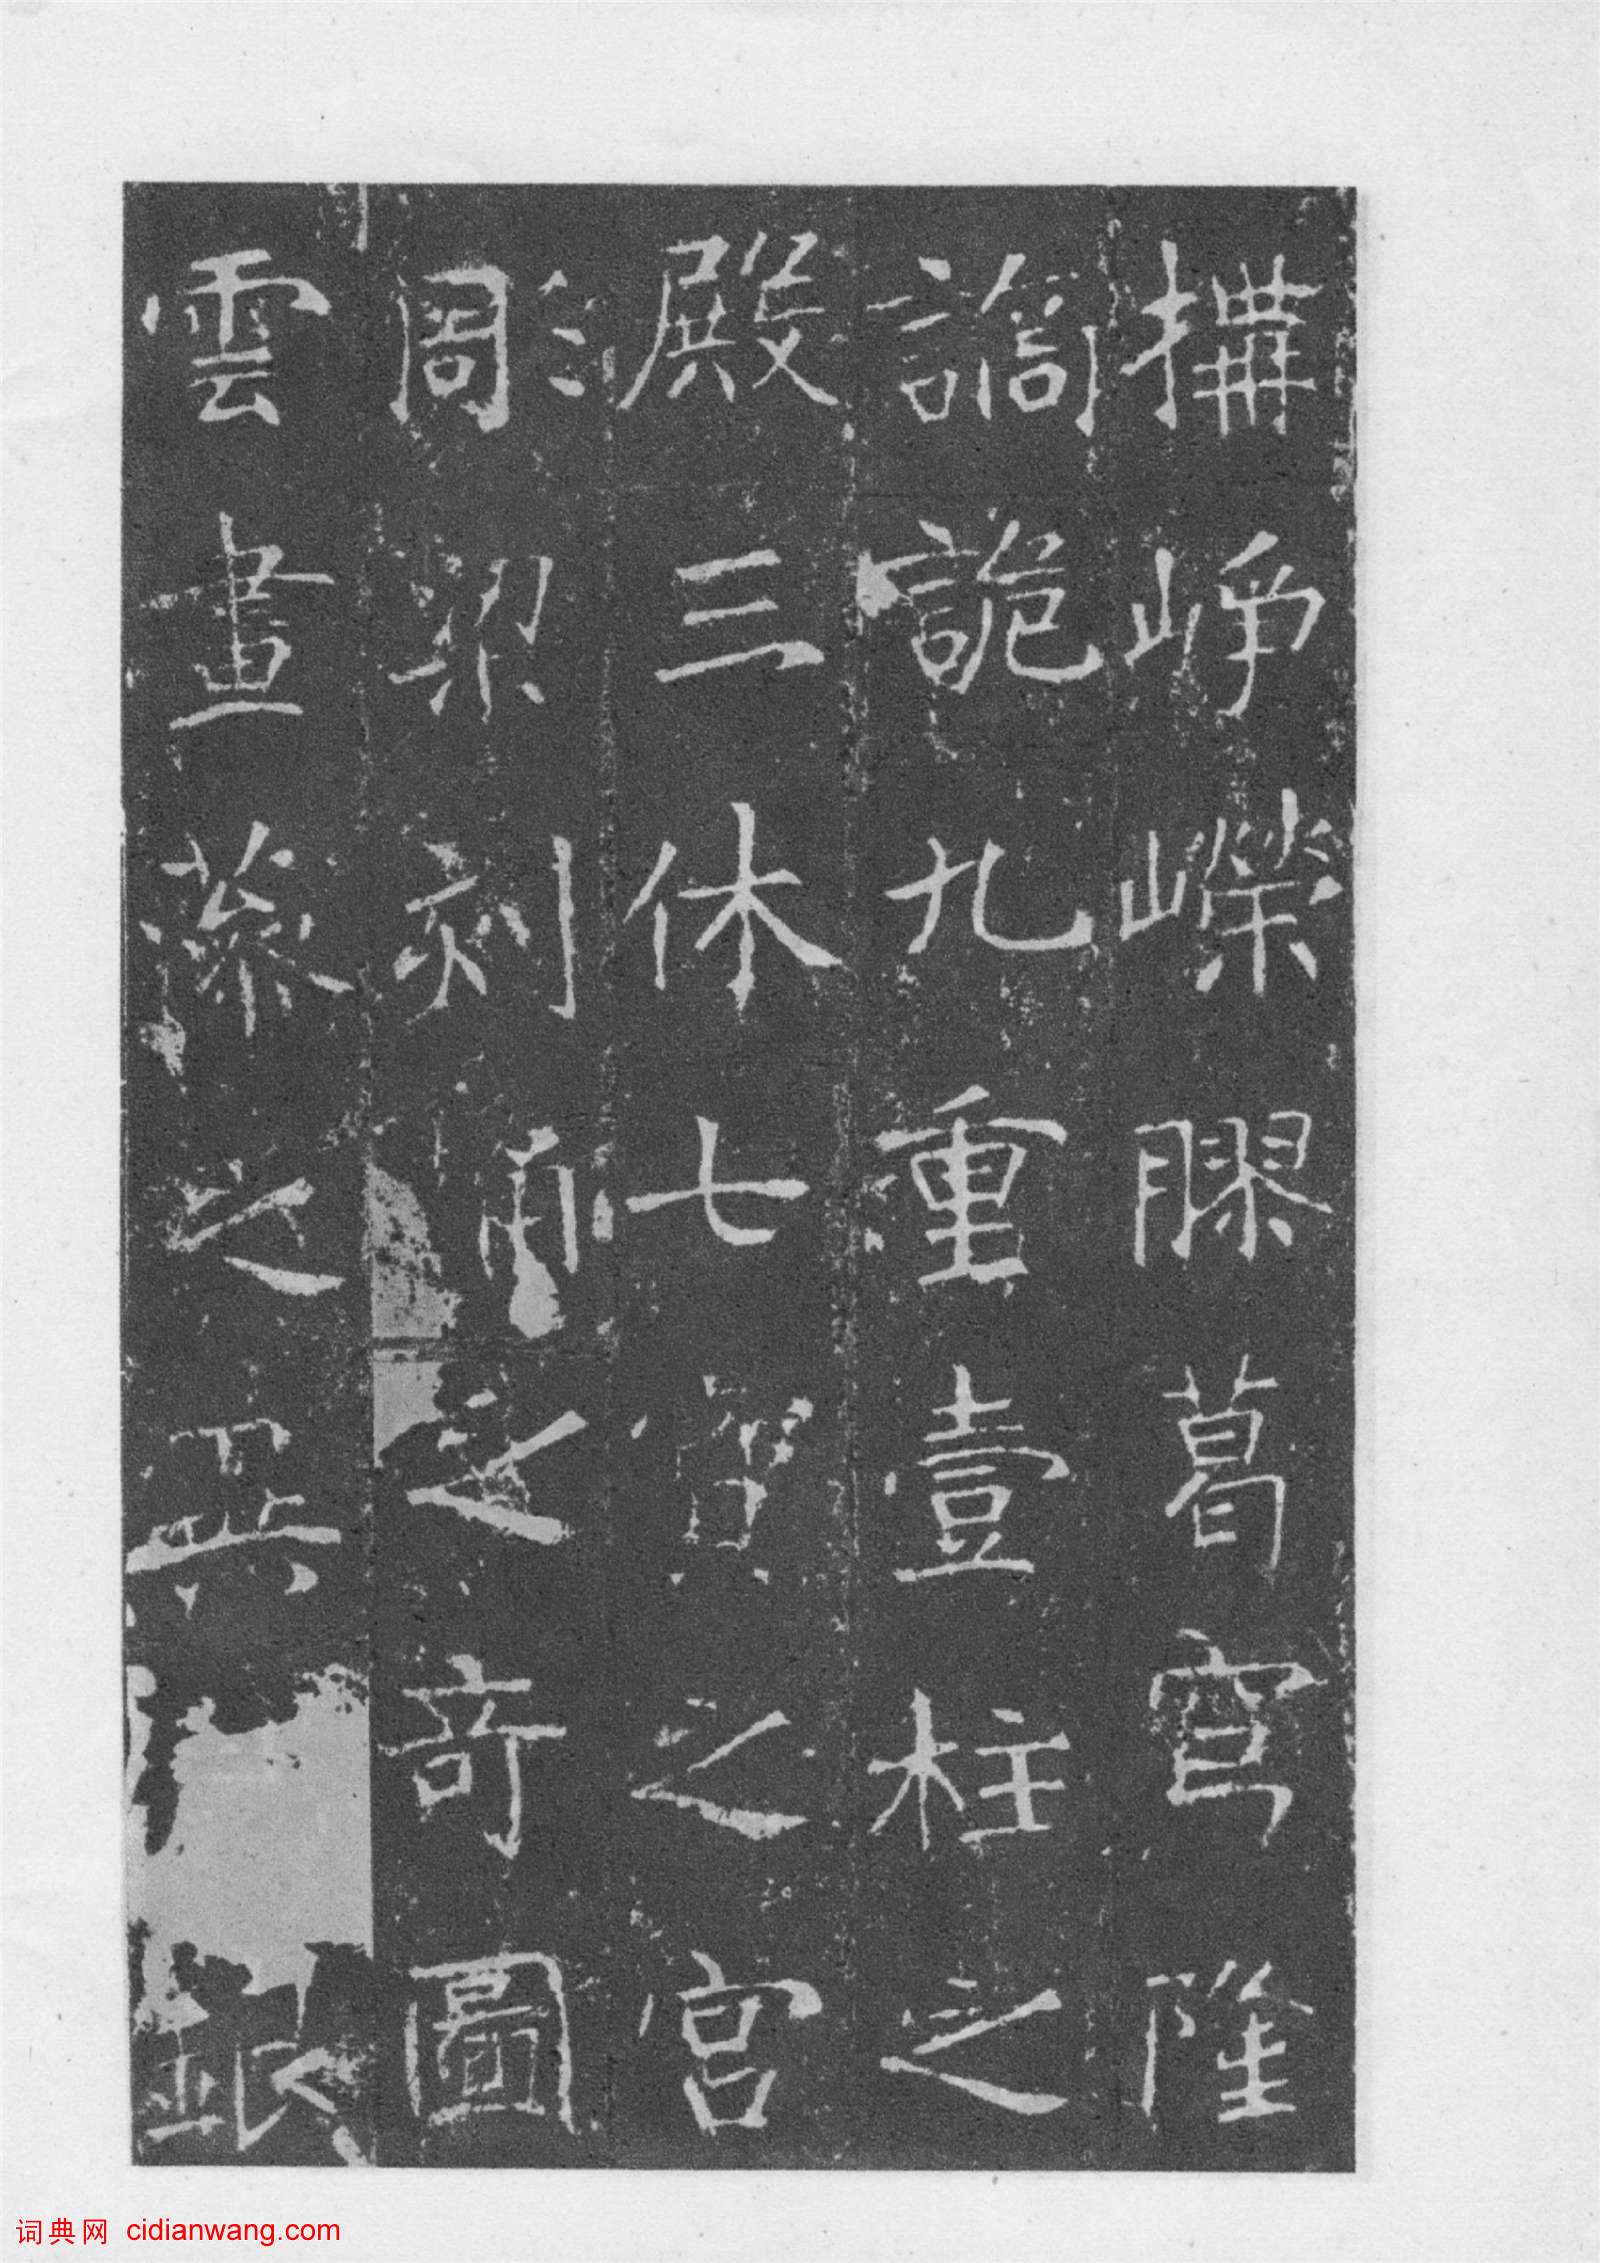 搆崢嶸膠葛穹隆
譎詭九重壹柱之
殿三休七寶之宮
彫梁刻桷之奇圖
雲畫藻之異銀
词典网 cidianwang.com